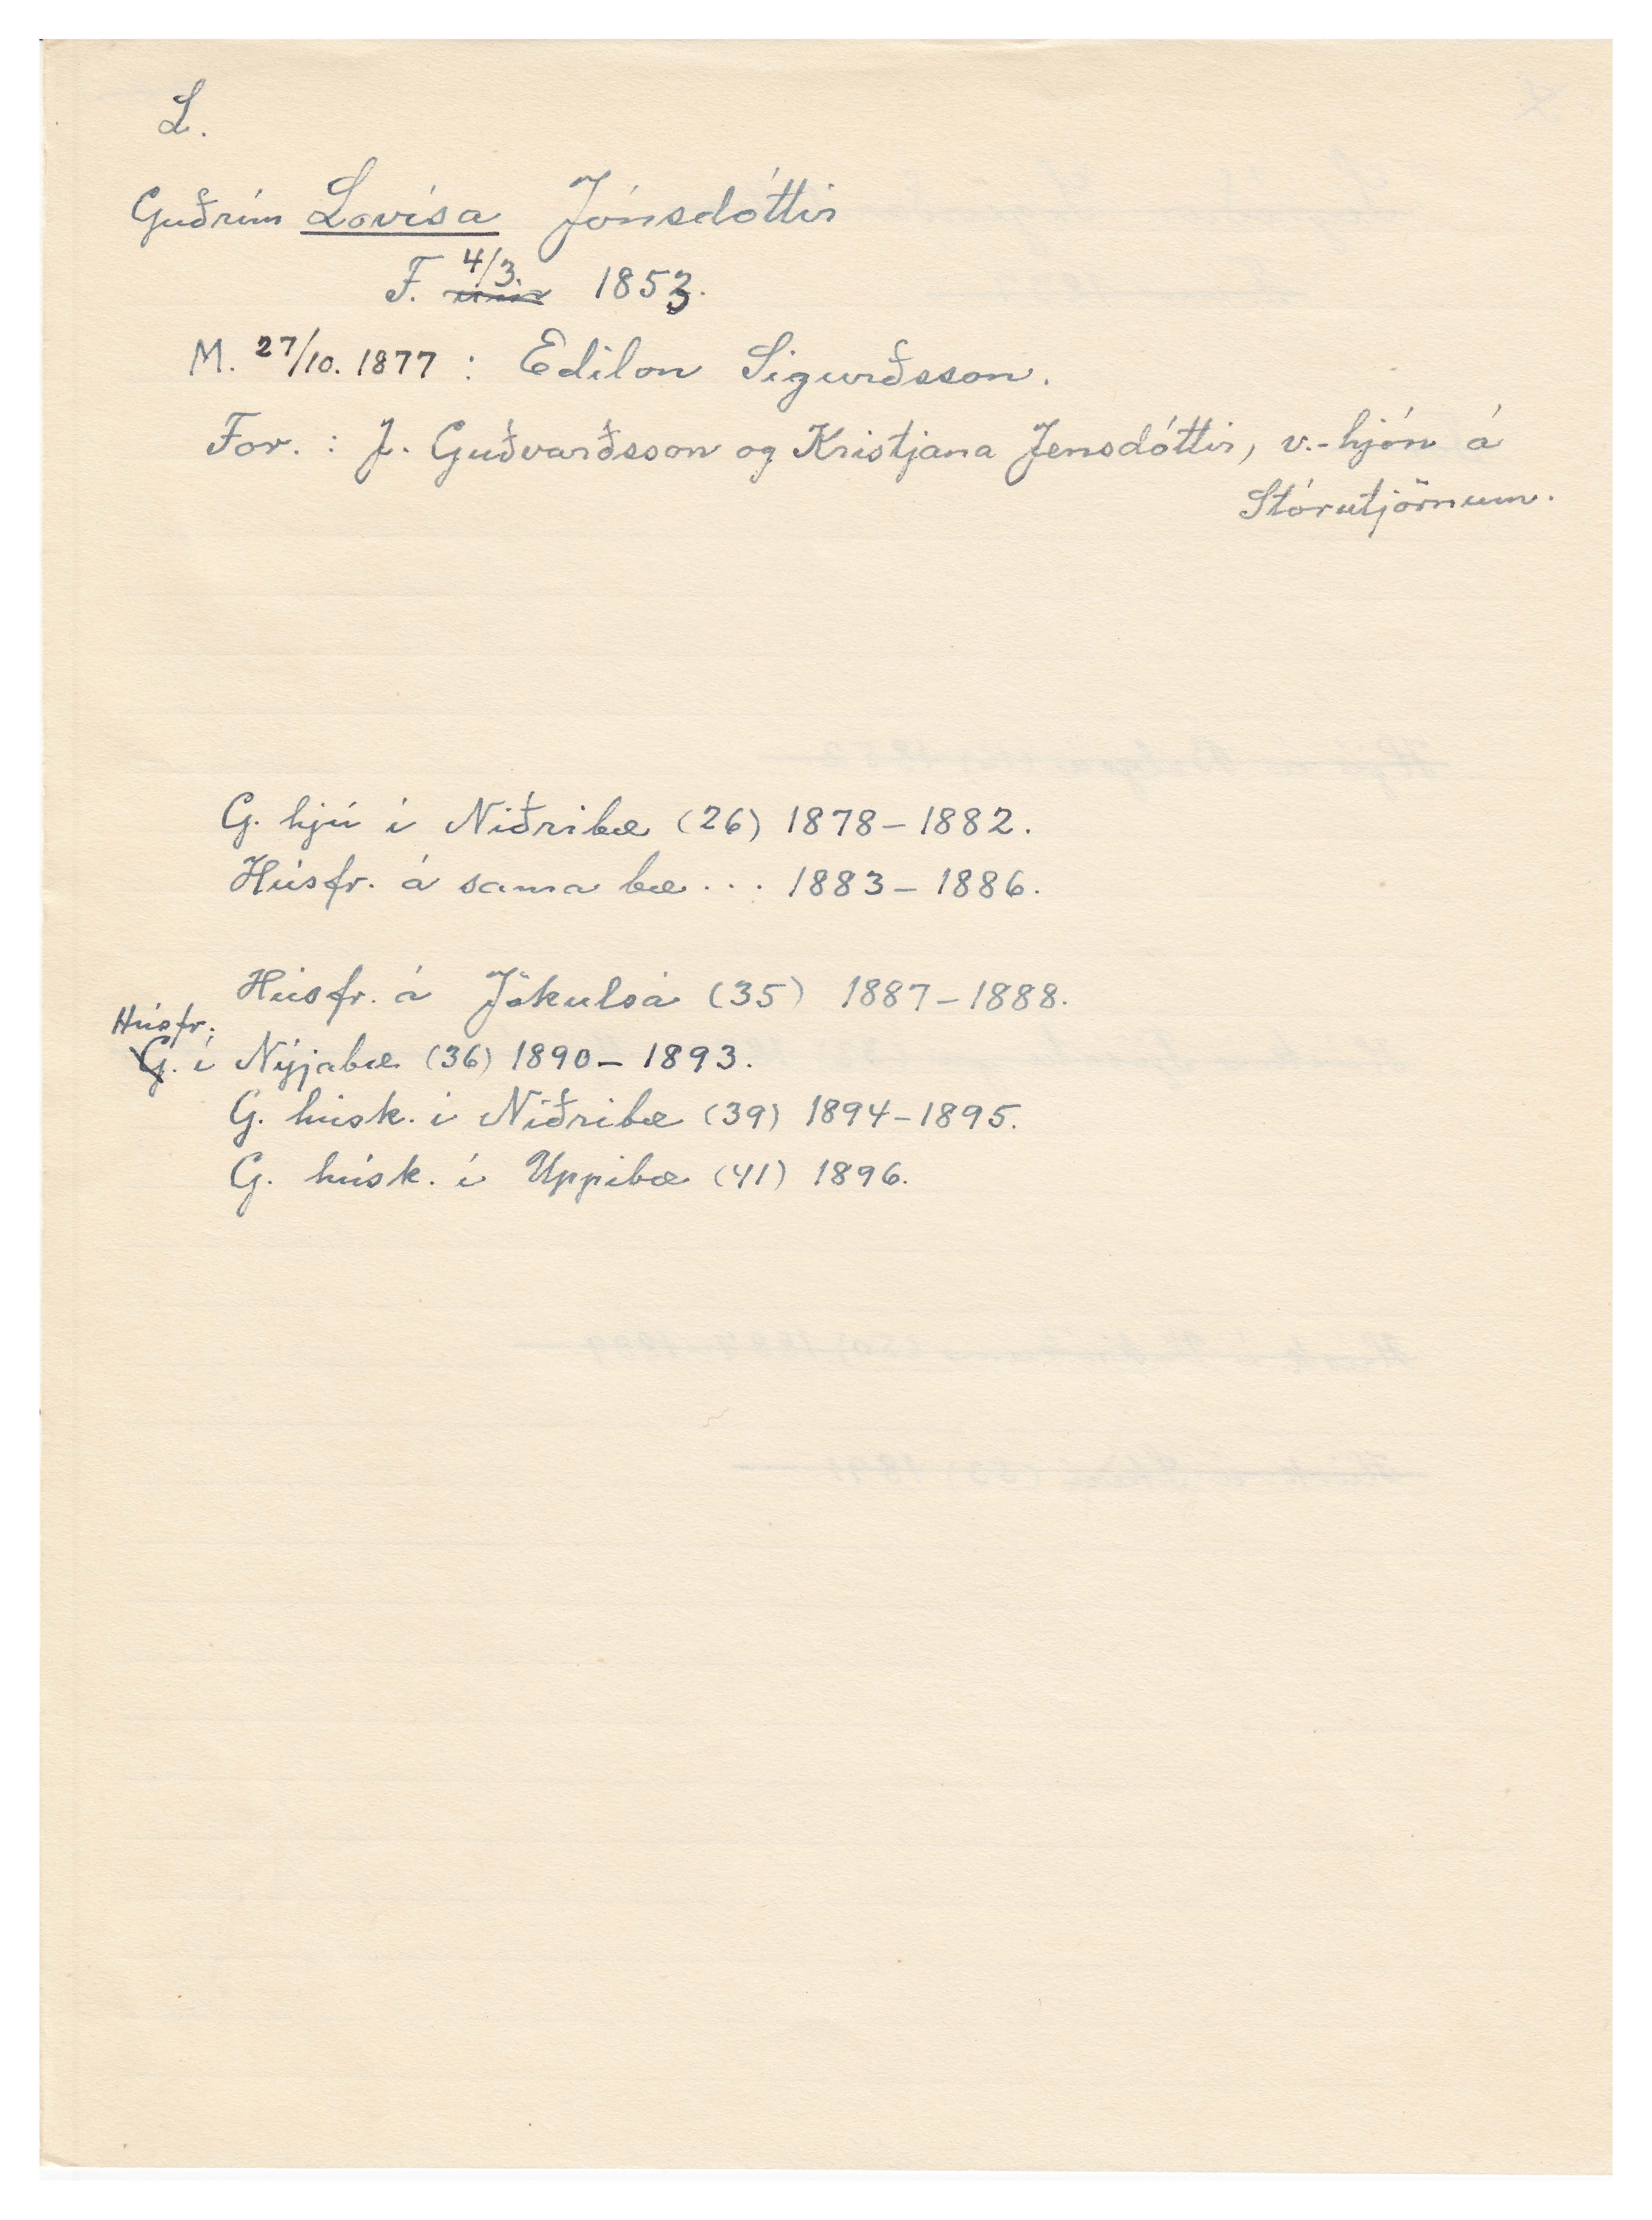 L.
Guðrún Lovísa Jónsdóttir
F. 4/3. 1853.
M. 27/10. 1877 : Edilon Sigurðsson.
For. : J. Guðvarðsson og Kristjana Jensdóttir, v.-hjón á
Stórutjörnum.
G. hjú í Niðribæ (26) 1878–1882.
Húsfr. á sama bæ . . . 1883–1886.
Húsfr. á Jökulsá (35) 1887–1888.
Húsfr.
G. í Nýjabæ (36) 1890–1893.
G. húsk. í Niðribæ (39) 1894–1895.
G. húsk. í Uppibæ (41) 1896.